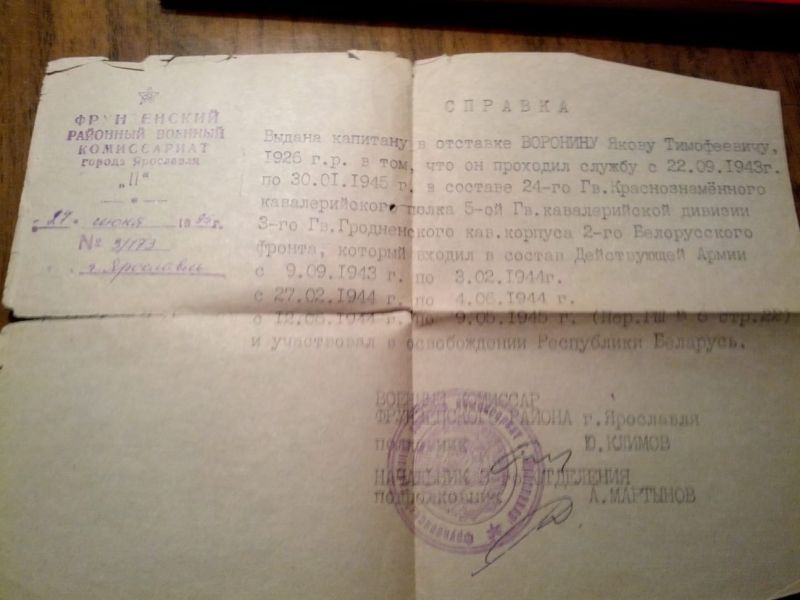 ФРУНЗЕНСКИЙ
РАЙОННЫЙ ВОЕННЫЙ
КОМИССАРИАТ
города Ярославля
„II“
„27“ июня 1995г.
№ 2/173
г. Ярославль
СПРАВКА
Выдана капитану в отставке ВОРОНИНУ Якову Тимофеевичу,
1926 г.р. в том, что он проходил службу с 22.09.1943г.
по 30.01.1945 г. в составе 24-го Гв.Краснознамённого
кавалерийского полка 5-ой Гв.кавалерийской дивизии
3-го Гв.Гродненского кав.корпуса 2-го Белорусского
фронта, который входил в состав Действующей Армии
с 9.09.1943 г. по 3.02.1944г.
с 27.02.1944 г. по 4.06.1944 г.
с 12.06.1944 г. по 9.05.1945 г. (Пер.ГШ № 6 стр.22)
и участвовал в освобождении Республики Беларусь.
ВОЕННЫЙ КОМИССАР
ФРУНЗЕНСКОГО РАЙОНА г.Ярославля
полковник Ю.КЛИМОВ
НАЧАЛЬНИК 3-го ОТДЕЛЕНИЯ
подполковник А.МАРТЫНОВ